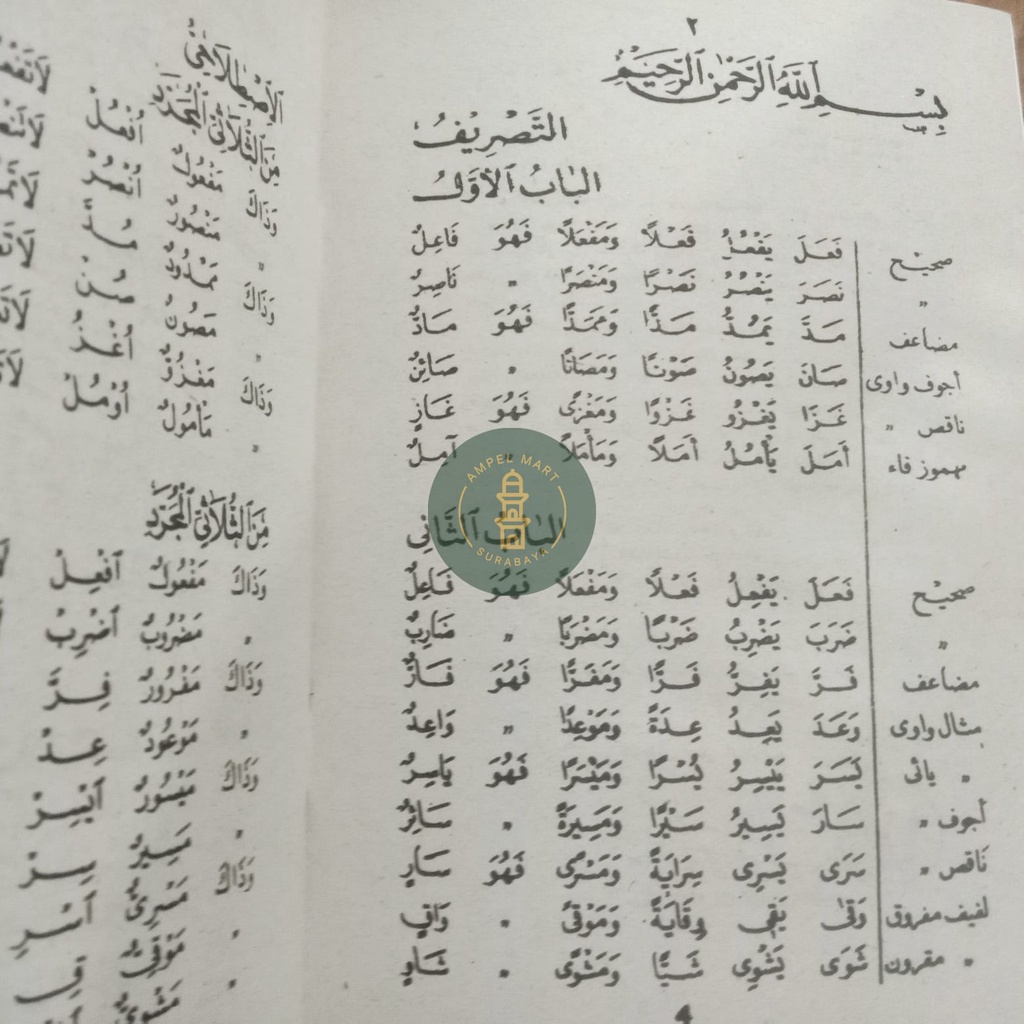 ٢
بِسْمِ اللّٰهِ الرَّحْمٰنِ الرَّحِيْمِ
التَّصْرِيْفُ
الْبَابُ الْاَوَّلُ
صحيح فَعَلَ يَفْعُلُ فَعْلًا وَمَفْعَلًا فَهُوَ فَاعِلٌ
〃 نَصَرَ يَنْصُرُ نَصْرًا وَمَنْصَرًا 〃 نَاصِرٌ
مضاعف مَدَّ يَمُدُّ مَدًّا وَمَمَدًّا فَهُوَ مَادٌّ
أجوف واوى صَانَ يَصُوْنُ صَوْنًا وَمَصَانًا 〃 صَائِنٌ
ناقص 〃 غَزَا يَغْزُو غَزْوًا وَمَغْزًى فَهُوَ غَازٍ
مهموز فاء اَمَلَ يَأْمُلُ اَمَلًا وَمَأْمَلًا 〃 آمِلٌ
AMPEL MART
SURABAYA
الْبَابُ الثَّانِى
صحيح فَعَلَ يَفْعِلُ فَعْلًا وَمَفْعَلًا فَهُوَ فَاعِلٌ
〃 ضَرَبَ يَضْرِبُ ضَرْبًا وَمَضْرَبًا 〃 ضَارِبٌ
مضاعف فَرَّ يَفِرُّ فَرًّا وَمَفَرًّا فَهُوَ فَارٌّ
مثال واوى وَعَدَ يَعِدُ عِدَةً وَمَوْعِدًا 〃 وَاعِدٌ
〃 يائى يَسَرَ يَيْسِرُ يُسْرًا وَمَيْسَرًا فَهُوَ يَاسِرٌ
أجوف 〃 سَارَ يَسِيْرُ سَيْرًا وَمَسِيْرَةً 〃 سَائِرٌ
ناقص 〃 سَرَى يَسْرِى سِرَايَةً وَمَسْرًى فَهُوَ سَارٍ
لفيف مفروق وَقَى يَقِى وِقَايَةً وَمَوْقًى 〃 وَاقٍ
〃 مقرون شَوَى يَشْوِى شَيًّا وَمَشْوًى 〃 شَاوٍ
الْاِصْطِلَاحِىُّ
مِنَ الثُّلَاثِىِّ الْمُجَرَّدِ
وَذَاكَ مَفْعُوْلٌ اُفْعُلْ
〃 مَنْصُوْرٌ اُنْصُرْ
وَذَاكَ مَمْدُوْدٌ مُدَّ
〃 مَصُوْنٌ صُنْ
وَذَاكَ مَغْزُوٌّ اُغْزُ
〃 مَأْمُوْلٌ اُوْمُلْ
مِنَ الثُّلَاثِىِّ الْمُجَرَّدِ
وَذَاكَ مَفْعُوْلٌ اِفْعِلْ
〃 مَضْرُوْبٌ اِضْرِبْ
وَذَاكَ مَفْرُوْرٌ فِرَّ
〃 مَوْعُوْدٌ عِدْ
وَذَاكَ مَيْسُوْرٌ اِيْسِرْ
〃 مَسِيْرٌ سِرْ
وَذَاكَ مَسْرِىٌّ اِسْرِ
〃 مَوْقِىٌّ قِ
〃 مَشْوِىٌّ